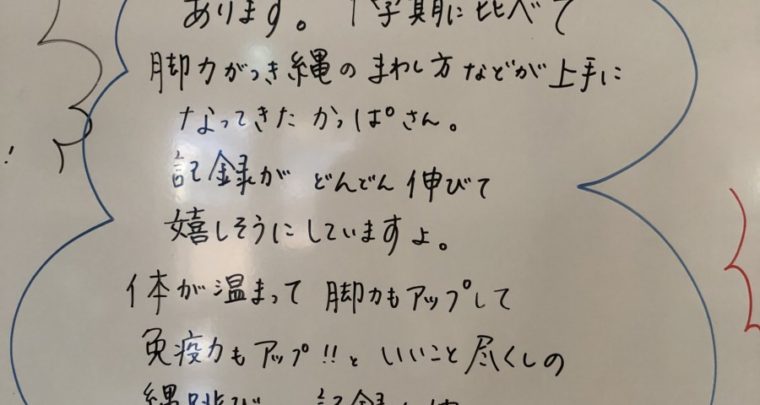 あります。1学期に比べて
脚力がつき縄のまわし方などが上手に
なってきたかっぱさん。
記録がどんどん伸びて
嬉しそうにしていますよ。
体が温まって脚力もアップして
免疫力もアップ!!といいこと尽くしの
縄跳び
!